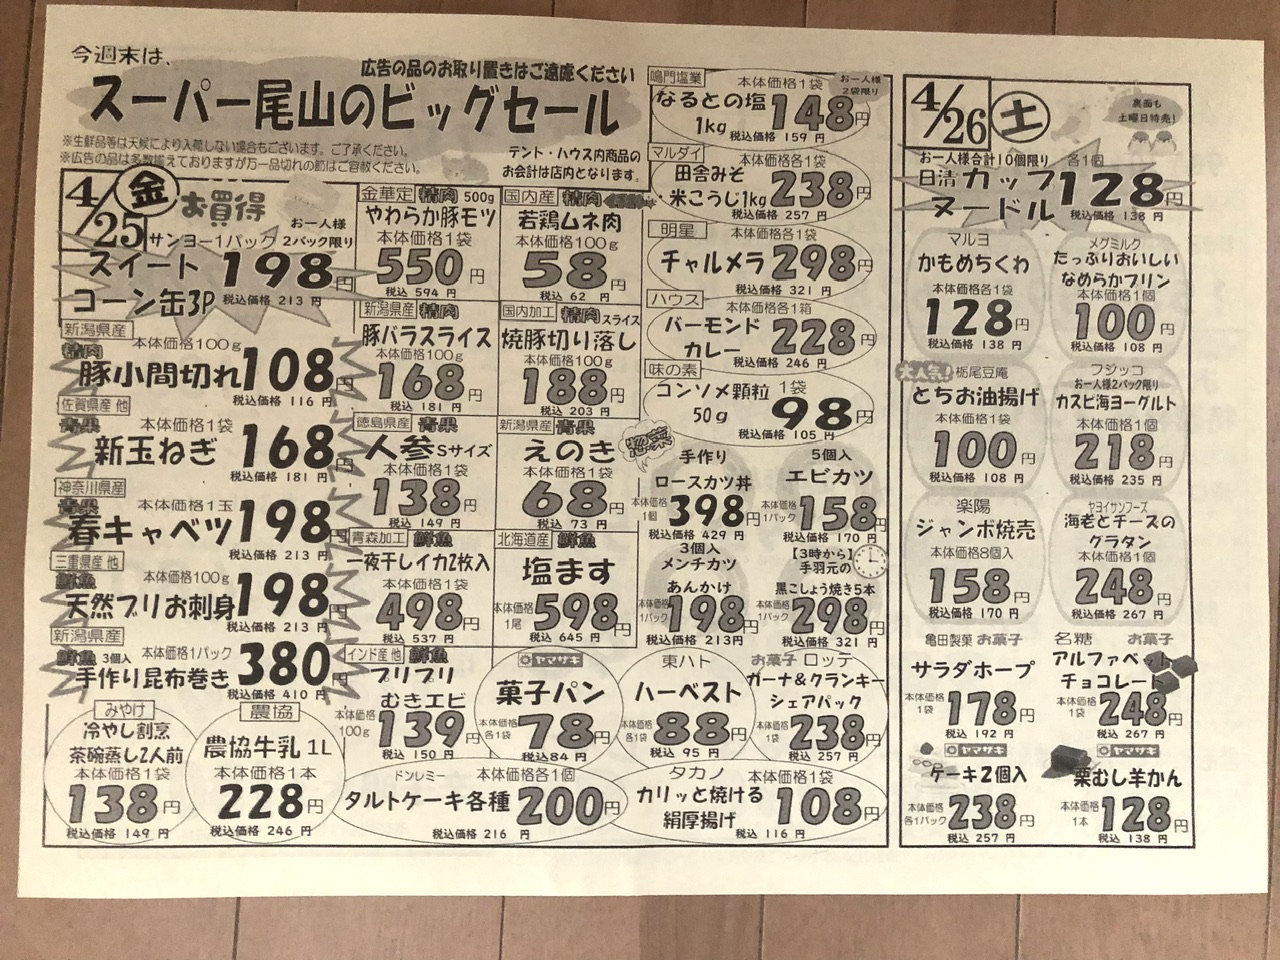 今週末は、
スーパー尾山のビッグセール
広告の品のお取り置きはご遠慮ください
※生鮮品等は天候により入荷しない場合もございます。ご了承ください。
※広告の品は多数揃えておりますが万一品切れの節はご容赦ください。
テント・ハウス内商品の
お会計は店内となります。
4/25 金
お買得
お一人様
サンヨー1パック 2パック限り
スイート
コーン缶3P
198円
税込価格 213 円
新潟県産
精肉
本体価格100g
豚小間切れ
108円
税込価格 116 円
佐賀県産 他
青果
本体価格1袋
新玉ねぎ
168円
税込価格 181 円
神奈川県産
青果
本体価格1玉
春キャベツ
198円
税込価格 213 円
三重県産 他
鮮魚
本体価格100g
天然ブリお刺身
198円
税込価格 213 円
新潟県産
鮮魚 3個入
本体価格1パック
手作り昆布巻き
380円
税込価格 410 円
みやけ
冷やし割烹
茶碗蒸し2人前
本体価格1袋
138円
税込価格 149 円
農協
農協牛乳 1L
本体価格1本
228円
税込価格 246 円
金華定 精肉 500g
やわらか豚モツ
本体価格1袋
550円
税込 594 円
国内産 精肉
若鶏ムネ肉
本体価格100g
58円
税込 62 円
新潟県産 精肉
豚バラスライス
本体価格100g
168円
税込 181 円
国内加工 精肉 スライス
焼豚切り落し
本体価格100g
188円
税込 203 円
徳島県産 青果
人参 Sサイズ
本体価格1袋
138円
税込 149 円
新潟県産 青果
えのき
本体価格1袋
68円
税込 73 円
青森加工 鮮魚
一夜干しイカ2枚入
本体価格1袋
498円
税込 537 円
北海道産 鮮魚
塩ます
本体価格
1尾
598円
税込 645 円
インド産 他 鮮魚
プリプリ
むきエビ
本体価格
100g
139円
税込 150 円
ヤマザキ
菓子パン
本体価格
各1袋
78円
税込84 円
東ハト
ハーベスト
本体価格
各1袋
88円
税込 95 円
お菓子 ロッテ
ガーナ&クランキー
シェアパック
本体価格
各1袋
238円
税込 257 円
ドンレミー
本体価格各1個
タルトケーキ各種
200円
税込価格 216 円
タカノ
本体価格1袋
カリッと焼ける
絹厚揚げ
108円
税込 116 円
鳴門塩業
本体価格1袋
お一人様
2袋限り
なるとの塩
1kg
148円
税込価格 159 円
マルダイ
本体価格各1袋
田舎みそ
・米こうじ1kg
238円
税込価格 257 円
明星
本体価格各1袋
チャルメラ
298円
税込価格 321 円
ハウス
本体価格各1箱
バーモンド
カレー
228円
税込価格 246 円
味の素
コンソメ顆粒 1袋
50g
98円
税込価格 105 円
惣菜
手作り
ロースカツ丼
本体価格
1個
398円
税込価格 429 円
5個入
エビカツ
本体価格
1パック
158円
税込価格 170 円
3個入
メンチカツ
あんかけ
本体価格
1パック
198円
税込価格 213円
【3時から】
手羽元の
黒こしょう焼き5本
本体価格
1パック
298円
税込価格 321 円
4/26 土
裏面も
土曜日特売!
お一人様合計10個限り 各1個
日清カップ
ヌードル
128円
税込価格 138 円
マルヨ
かもめちくわ
本体価格各1袋
128円
税込価格 138 円
メグミルク
たっぷりおいしい
なめらかプリン
本体価格1個
100円
税込価格 108 円
大人気!
栃尾豆庵
とちお油揚げ
本体価格1個
100円
税込価格 108 円
フジッコ
お一人様2パック限り
カスピ海ヨーグルト
本体価格1個
218円
税込価格 235 円
楽陽
ジャンボ焼売
本体価格8個入
158円
税込価格 170 円
ヤヨイサンフーズ
海老とチーズの
グラタン
本体価格1個
248円
税込価格 267 円
亀田製菓 お菓子
サラダホープ
本体価格
1袋
178円
税込 192 円
名糖 お菓子
アルファベット
チョコレート
本体価格
1袋
248円
税込 267 円
ヤマザキ
ケーキ2個入
本体価格
各1パック
238円
税込 257 円
ヤマザキ
栗むし羊かん
本体価格
1本
128円
税込 138 円